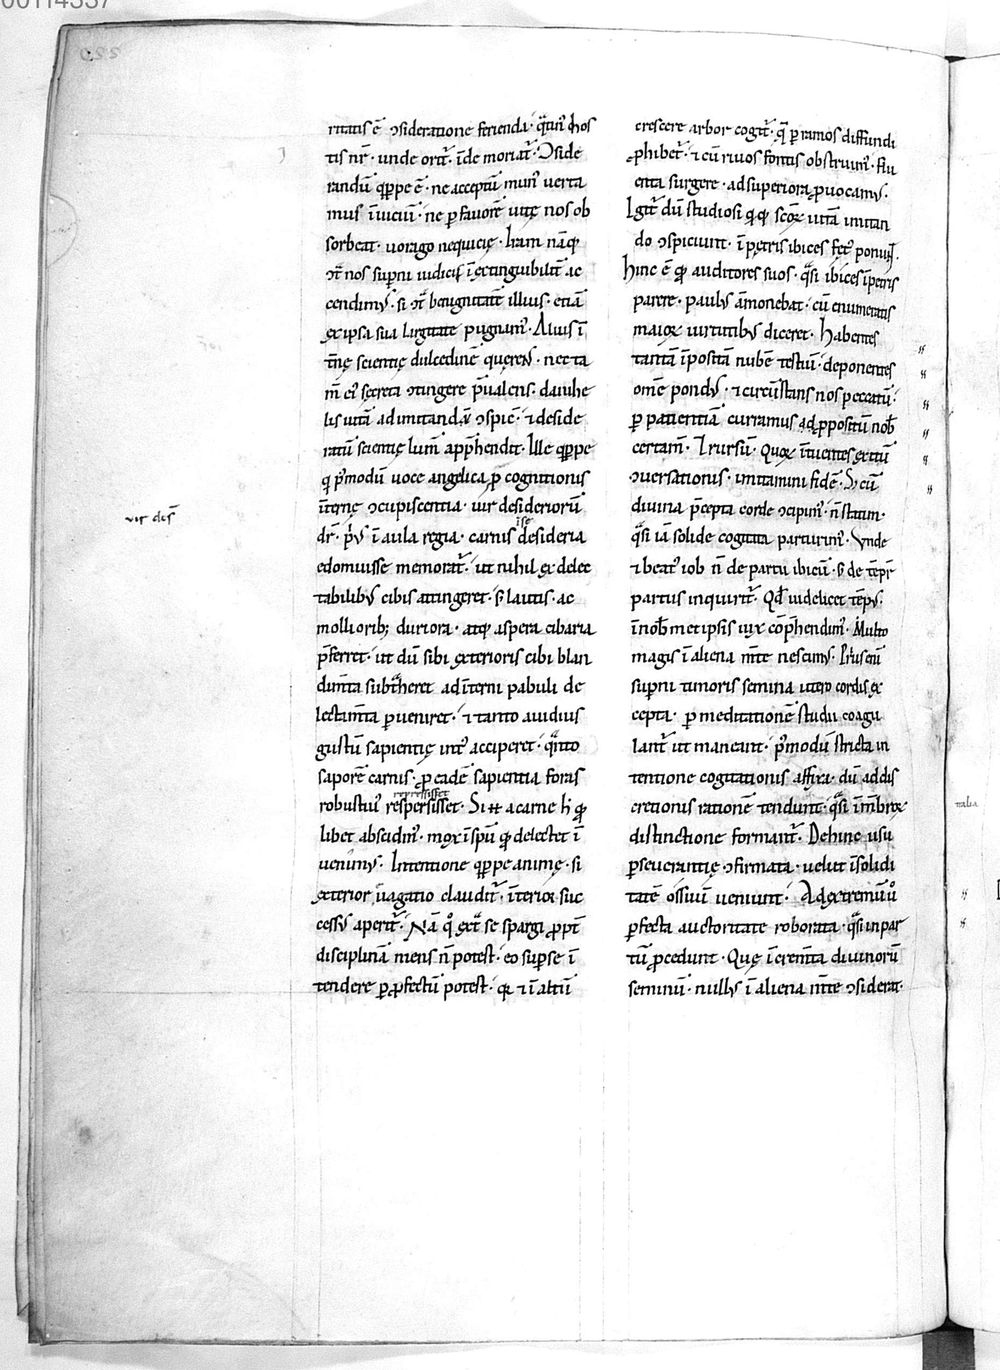 00114337
ritatis ē ↄsideratione ferienda· q̄tinꝰ hos
tis nr̄· unde orit᷑· īde moriat᷑· Ↄside
randū q̄ppe ē· ne acceptū munꝰ uerta
mus ī uiciū· ne ꝑ fauorē uitę nos ob
sorbeat· uorago nequicię· Iram nāq
ↄt᷑ nos supni iudicis īextinguibilit᷑ ac
cendimꝰ· si ↄt᷑ benignitatē illius· etiā
ex ipsa sua largitate pugnamꝰ· Alius ī
t̄nę scientię dulcedinē querens· nec ta
m̄ eiꝰ secreta ↄtingere p̄ualens· danihe
lis uitā ad imitandū ↄspic̄· ⁊ deside
ratū scientię lum̄ app̄hendit· Ille q̄ppe
q p̄modū uoce angelica ꝓ cognitionis
īternę ↄcupiscentia· uir desideriorū
dr̄· p̄ꝰ ī aula regia· carnis desideria
edomuisse memorat᷑· ut nihil ex delec
tabilibꝰ cibis attingeret· s; lautis· ac
mollioribꝫ duriora· atq aspera cibaria
p̄ferret· ut dū sibi exterioris cibi blan
dim̄ta subt̄heret ad īterni pabuli de
lectam̄ta pueniret· ⁊ tanto auidius
gustū sapientię intꝰ acciperet· q̄nto
saporē carnis· ꝓ eadē sapientia foras
repressisset
robustiꝰ respersisset· Si ħ a carne h̄ qđ
libet abscidimꝰ· mox ī spū qđ delectet ī
uenimꝰ· Intentione q̄ppe animę· si
exterior uagatio claudit᷑· īterior suc
cessꝰ aperit᷑· Nā qͦ ext̄ se spargi ꝓpt̄
disciplinā mens n̄ potest· eo supse ī
tendere ꝑ ꝓfectū potest· qa ⁊ ī altū
vir des̄
crescere arbor cogit᷑· q̄ ꝑ ramos diffundi
ꝓhibet᷑· ⁊ cū riuos fontis obstruimꝰ· flu
enta surgere· ad superiora ꝓuocamꝰ·
Igit᷑ dū studiosi qq scōꝝ uitā imitan
do ↄspiciunt· ī petris ibices fetꝰ ponunt·
Hinc ē qđ auditores suos· q̄si ibices ī petris
parere· paulꝰ āmonebat· cū enumeratis
maioꝝ uirtutibꝰ diceret· Habentes
tantā īpositā nubē testiū· deponentes
om̄e pondꝰ· ⁊ circūstans nos peccatū·
ꝑ patientiā curramus ad ꝓpositū nob̄
certam̄· Irursū· Quoꝝ ītuentes exitū
ↄuersationis· imitamini fidē· S; cū
diuina p̄cepta corde ↄcipimꝰ· n̄ statim·
q̄si iā solide cogitata parturimꝰ· Vnde
⁊ beatꝰ iob n̄ de partu ibicū· s; de tēpr̄
partus inquirit᷑· Qđ uidelicet tēpꝰ·
ī nob̄metipsis uix cōp̄hendimꝰ· Multo
magis ī aliena m̄te nescimꝰ· Priꝰ enī
supni timoris semina utero cordis ex
cepta· ꝑ meditationē studii coagu
lant᷑ ut maneant· p̄modū stricta in
tentione cogitationis affixa· dū ad dis
cretionis rationē tendunt· q̄si ī m̄broꝝ
distinctione formant᷑· Dehinc usu
ꝑseuerantię ↄfirmata· uelut ī solidi
tatē ossiuū ueniunt· Ad extremū uͦ
ꝑfecta auctoritate roborata· q̄si in par
tū ꝓcedunt· Quę ī crem̄ta diuinorū
seminū· nullꝰ ī aliena m̄te ↄsiderat·